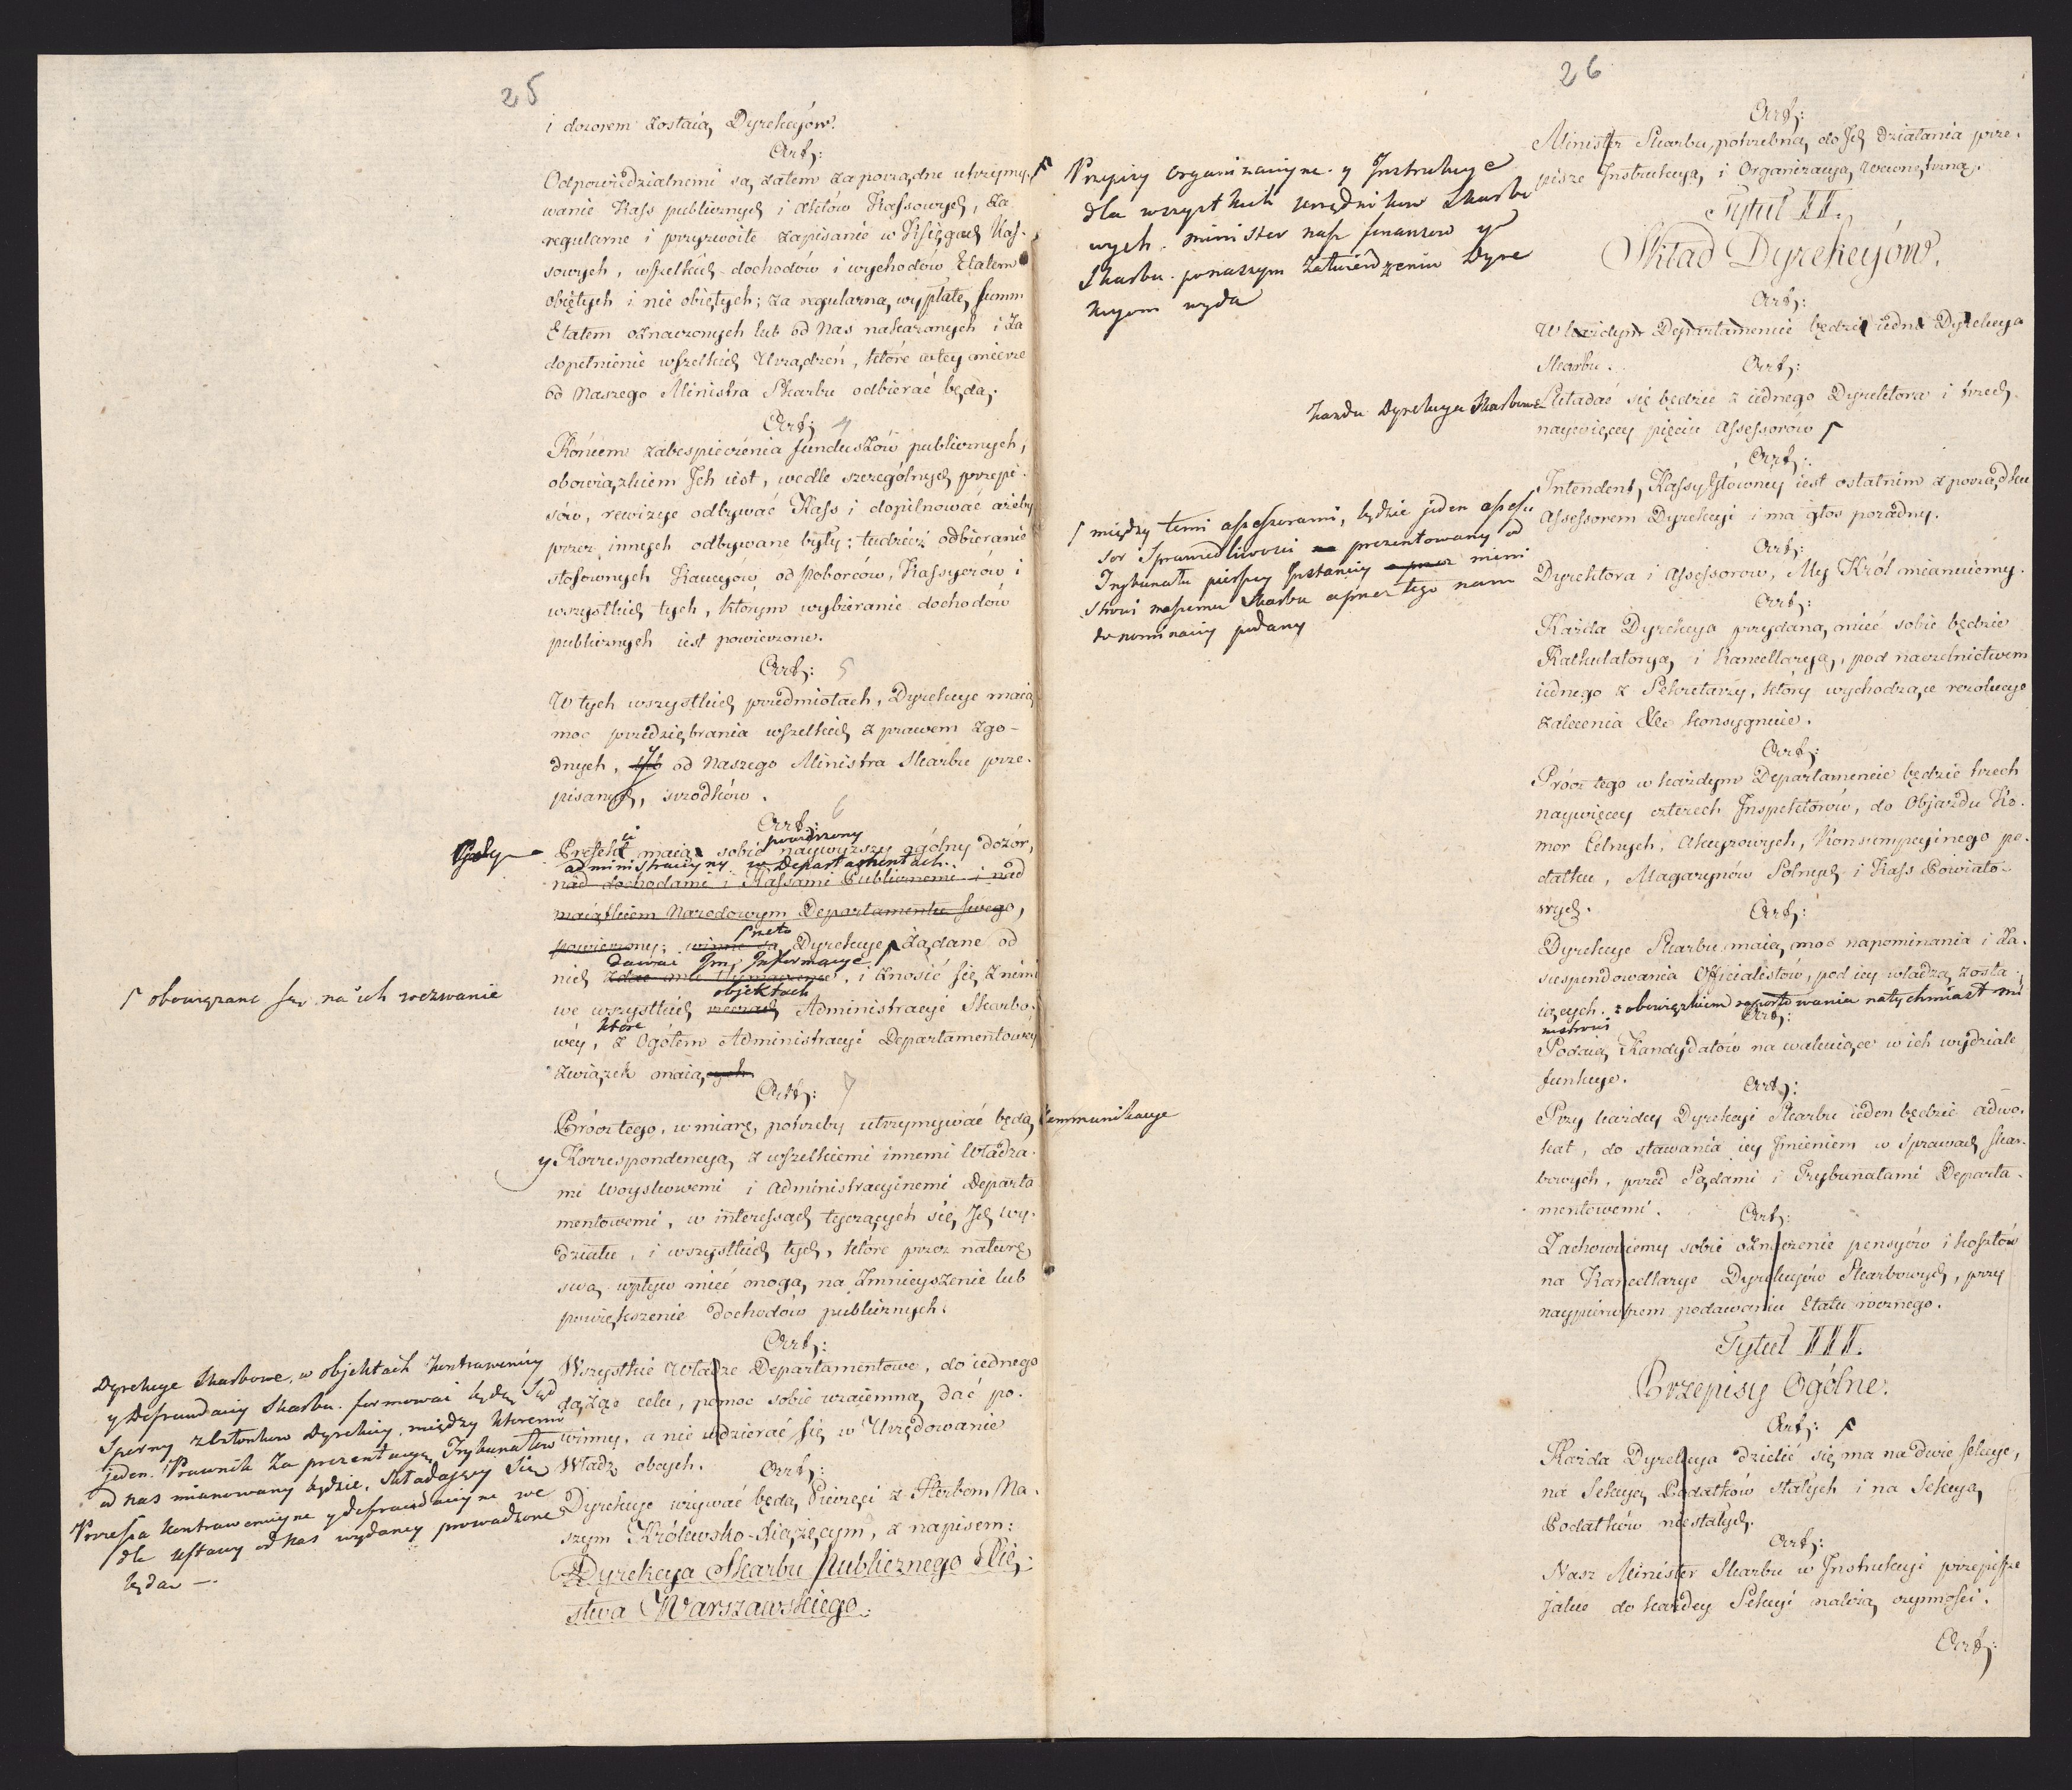 25
i dozorem zostaią Dyrekcyów.
Art:
Odpowiedzialnemi są zatem za porządne utrzymy-
wanie Kass publicznych i Aktów Kassowych, za
regularne i przyzwoite zapisanie w Księgach Kas-
sowych, wszelkich dochodów i wychodów Etatem
obiętych i nie obiętych; za regularną wypłatę summ
Etatem oznaczonych lub od Nas nakazanych i za
dopełnienie wszelkich Urządzeń, które w tey mierze
od Naszego Ministra Skarbu odbierać będą.
Art: 4
Końcem zabespieczenia funduszów publicznych,
obowiązkiem Ich iest, wedle szczególnych przepi-
sów, rewizye odbywać Kass i dopilnować ażeby
przez innych odbywane były; tudzież odbieranie
stosownych Kaucyow od Poborców, Kassyerów i
wszystkich tych, którym wybieranie dochodów
publicznych iest powierzone.
Art: 5
W tych wszystkich przedmiotach, Dyrekcye maią
moc przedziębrania wszelkich z prawem zgo-
dnych, lub y od Naszego Ministra Skarbu prze-
pisanych, szrodków.
Art: 6
Prefekci maią sobie powierzony naywyższy ogólny dozór,
administracyiny w Departamentach.
nad dochodami i Kassami Publicznemi i nad
maiątkiem Narodowym Departamentu swego,
powierzony; winne są przeto Dyrekcye żądane od
dawać Im Informacye
nich zdać im tłumaczenie, i znosić się z nimi
we wszystkich rzeczach objektach Administracyi Skarbo-
wéy, które z Ogółem Administracyi Departamentowéy
związek maiących.
⌈ obowiązane są na ich wezwanie
Art: 7
Prócz tego, w miarę potrzeby utrzymywać będą kommunikacye
y Korrespondencyą z wszelkiemi innemi Władza-
mi Woyskowemi i Administracyinemi Departa
mentowemi, w interessach tyczących się Ich wy-
działu, i wszystkich tych, które przez naturę
swą wpływ mieć mogą na Zmnieyszenie lub
powiększenie dochodów publicznych.
Art:
Wszystkie Władze Departamentowe, do iednego
dążąc celu, pomoc sobie wzaiemną dać po-
winny, a nie wdzierać się w Urzędowanie
Władz obcych.
Art:
Dyrekcye używać będą Pieczęci z Herbem Na-
szym Królewsko-Xiążęcym, z napisem:
Dyrekcya Skarbu Publicznego Xię-
stwa Warszawskiego.
Dyrekcye Skarbowe, w objektach kontrawencyi
y Defraudacyi Skarbu formować będą Sąd
Sporny z Członkow Dyrekcyi, między ktoremi
jeden Prawnik za prezentacyą Trybunałow
od nas mianowany będzie, Składający Się
Processa kontrawencyine y defraudacyine we
dle ustawy od nas wydaney prowadzone
będą —.
26
⌈ Przepisy organizacyine y Instrukcye
dla wszystkich urzędnikow Skarbo
wych minister nasz finansow y
Skarbu po naszym zatwierdzeniu Dyre
kcyom wyda
Art:
Minister Skarbu, potrzebną do Ich działania prze-
pisze Instrukcyą, i Organizacyą wewnętrzną.
Tytuł II.
Skład Dyrekcyów.
Art:
W każdym Departamencie będzie iedna Dyrekcya
Skarbu.
Art:
każda Dyrekcya Skarbowa Składać się będzie z iednego Dyrektora i trzech
naywięcey pięciu Assessorów ⌈
⌈ między temi assessorami, będzie jeden assess
sor Sprawiedliwości prezentowany od
Trybunału pierszey Instancyi mini
strowi naszemu Skarbu a przez tego nam
do nominacyi podany
Art:
Intendent Kassy Główney iest ostatnim z porządku
Assessorem Dyrekcyi i ma głos poradny.
Art:
Dyrektora i Assessorow, My Król mianuiemy.
Art:
Każda Dyrekcya przydaną mieć sobie będzie
Kalkulatoryą i Kancellaryą, pod naczelnictwem
iednego z Sekretarzy, który wychodzące rezolucye
zalecenia &c konsygnuie.
Art:
Prócz tego w każdym Departamencie będzie trzech
naywięcey czterech Inspektorów, do Objazdu Ko-
mor Celnych, Akcyzowych, Konsumpcyinego po-
datku, Magazynów Solnych i Kass Powiato-
wych.
Art:
Dyrekcye Skarbu maią moc napominania i za-
suspendowania Officialistów, pod icy władzą zosta-
iących. z obowiązkiem raportowania natychmiast mi
nistrowi
Art:
Podaią Kandydatów na wakuiące w ich wydziale
funkcye.
Art:
Przy każdey Dyrekcyi Skarbu ieden będzie adwo-
kat, do stawania iey Imieniem w sprawach skar-
bowych, przed Sądami i Trybunałami Departa-
mentowemi.
Art:
Zachowuiemy sobie oznaczenie pensyów i kosztów
na Kancellarye Dyrekcyów Skarbowych, przy
naypierwszem podawaniu Etatu rocznego.
Tytuł III.
Przepisy Ogólne.
Art: ⌈
Każda Dyrekcya dzielić się ma na dwie sekcye,
na Sekcyą Podatków stałych i na Sekcyą
Podatków niestałych.
Art:
Nasz Minister Skarbu w Instrukcyi przepisze
jakie do każdey Sekcyi należą czynności.
Art: